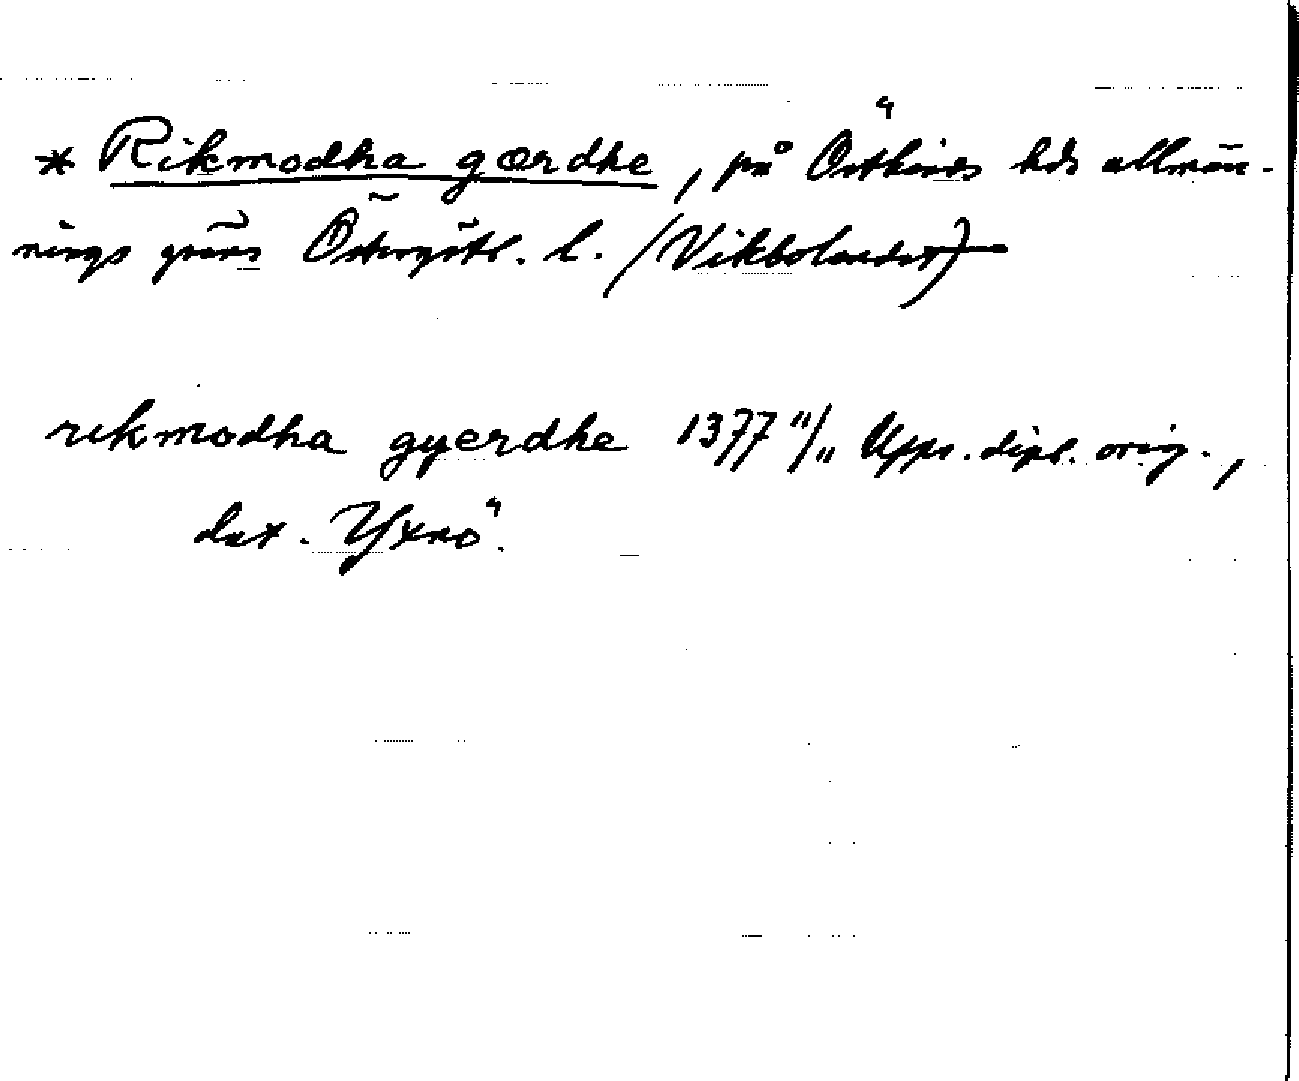 * Rikmodha gærdhe, på Östkinds hds allmän-
nings gräns Östergötl. l. (Vikbolandet)
rikmodha gyerdhe 1377 11/11 Upps. dipl. orig.,
dat. Yxnö.